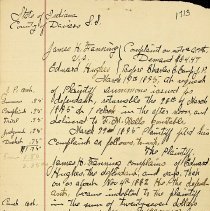 State of Indiana
County of Daviess S.S.
1713
James H. Fanning Complaint on
V.S. Demand $34.47
Edward Hughes Before Charles B Kemp J.P.
March 18th 1895 at request of
plaintiff summons issued to
defendant, returnable the 28th of March
1895 at o'clock in the after noon and
delivered to F.M. Wells Constable
March 22nd 1895 Plaintiff filed his
Complaint as follows towit.
The Plaintiff
James H. Fanning complains of Edward
Hughes, the defendant, and says that
on or about Nov 1st 1888 the defend-
ant became indebted to the plaintiff
in the sum of twenty-seven dollars
J.P. costs
Summons .25
Trial
Judgment .25
Docket
Const. cost